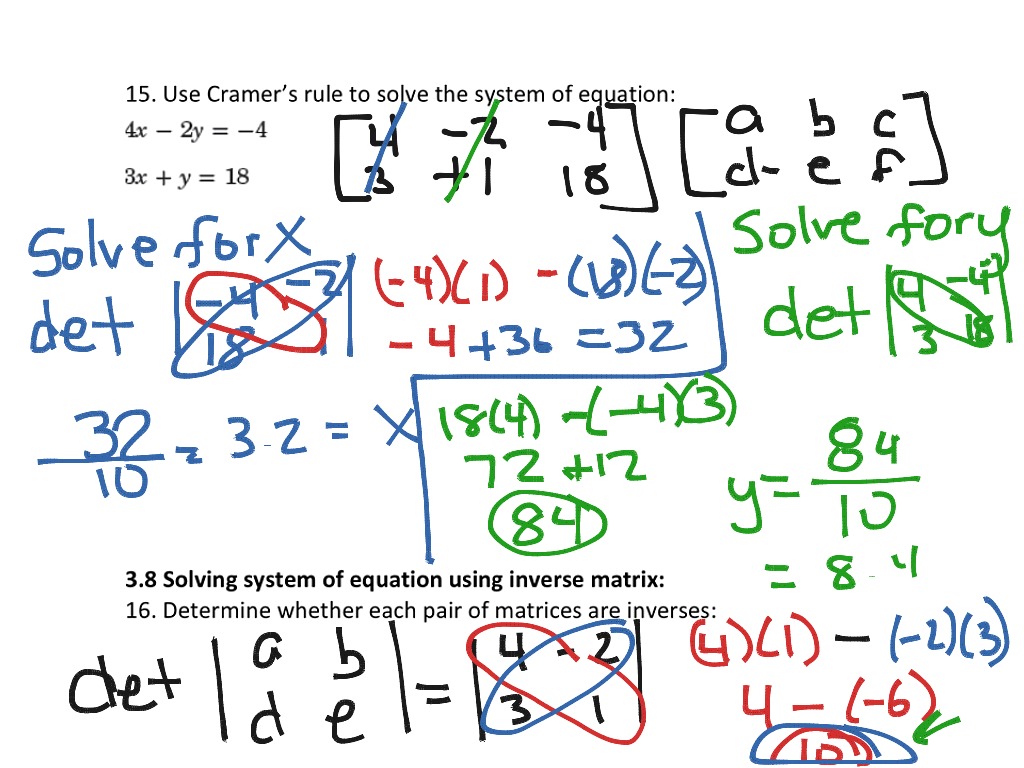 15. Use Cramer's rule to solve the system of equation:
4x − 2y = −4
3x + y = 18
[4 −2 −4
3 +1 18]
[a b c
d e f]
Solve for X
det |−4 −2
18 1|
(−4)(1) − (18)(−2)
−4 +36 = 32
Solve for y
det |4 −4
3 18|
32
10
= 3.2 = X
18(4) −(−4)(3)
72 +12
84
y = 84
10
= 8.4
3.8 Solving system of equation using inverse matrix:
16. Determine whether each pair of matrices are inverses:
det |a b
d e|
= |4 −2
3 1|
(4)(1) − (−2)(3)
4 − (−6)
10